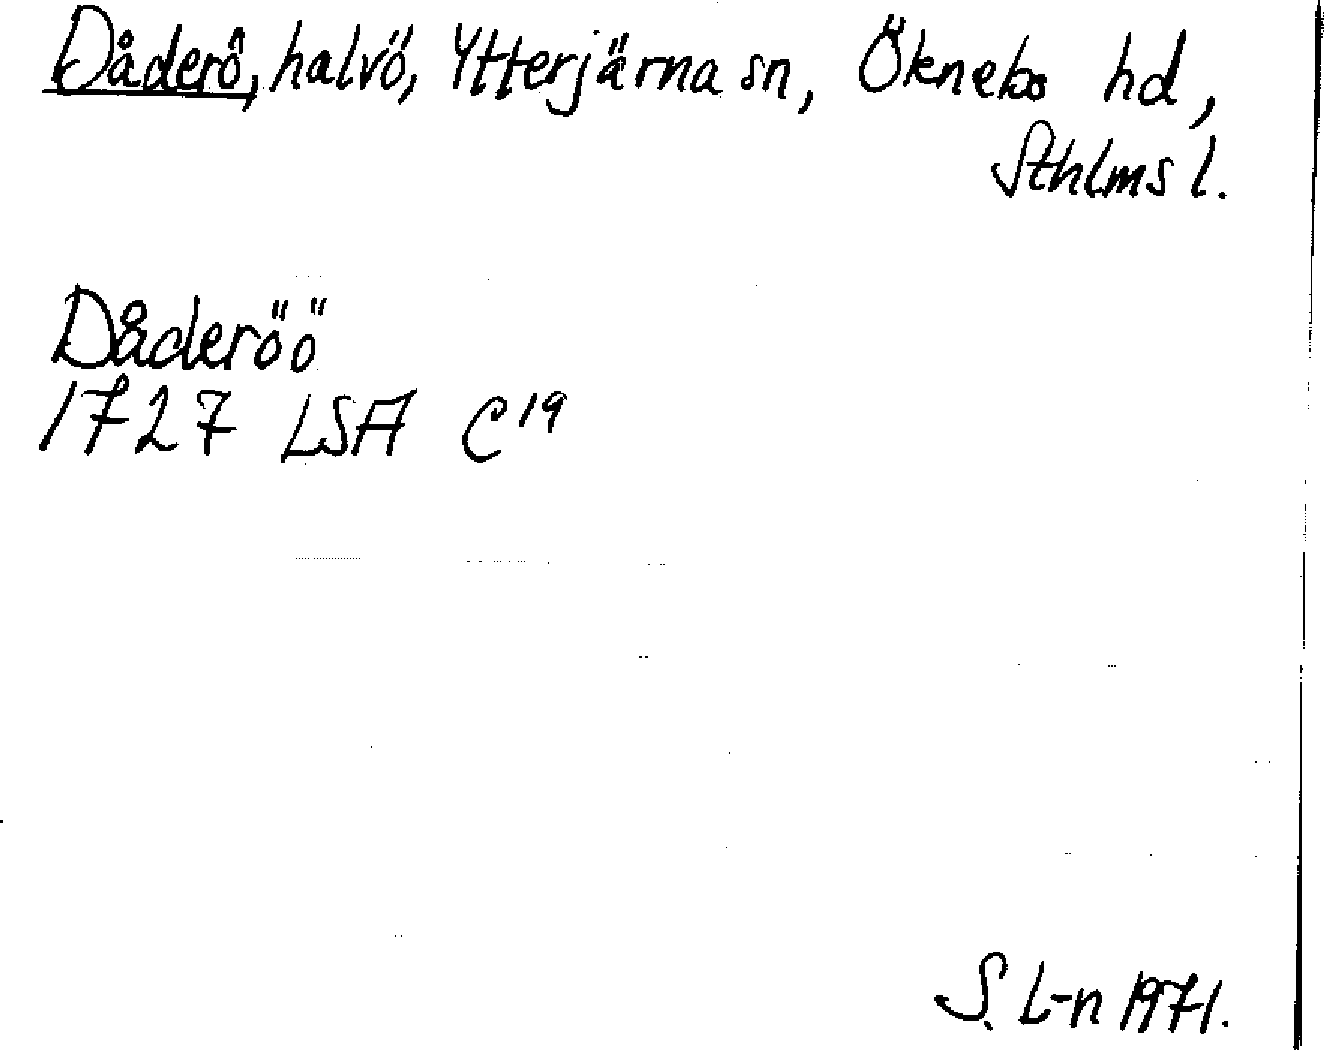 Dåderö, halvö, Ytterjärna sn, Öknebo hd,
Sthlms l.
Dåderöö
1727 LSA C19
S. L-n 1971.